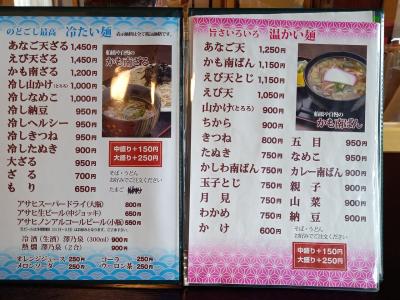 のどごし最高 冷たい麺
あなご天ざる 1,450円
えび天ざる 1,450円
かも南ざる 1,350円
冷し山かけ(とろろ) 950円
冷しなめこ 950円
冷し納豆 950円
冷しヘルシー 950円
冷しきつね 950円
冷したぬき 900円
大ざる 950円
ざる 700円
もり 650円
かも南ざる
中盛り+150円
大盛り+250円
そば・うどん
お好みでご注文ください
アサヒスーパードライ(大瓶) 800円
アサヒ生ビール(中ジョッキ) 650円
アサヒノンアルコールビール(小瓶) 550円
冷酒(生酒)澤乃泉(300ml) 900円
熱燗 澤乃泉(2合) 900円
オレンジジュース 250円
コーラ 250円
メロンソーダ 250円
ウーロン茶 250円
旨さいろいろ 温かい麺
あなご天 1,250円
かも南ばん 1,150円
えび天とじ 1,150円
えび天 1,050円
山かけ(とろろ) 950円
ちから 900円
きつね 800円
たぬき 750円
かしわ南ばん 750円
玉子とじ 750円
月見 750円
わかめ 750円
かけ 600円
かも南ばん
五目 950円
なめこ 950円
カレー南ばん 900円
親子 900円
山菜 900円
納豆 900円
そば・うどん
お好みでご注文ください
中盛り+150円
大盛り+250円